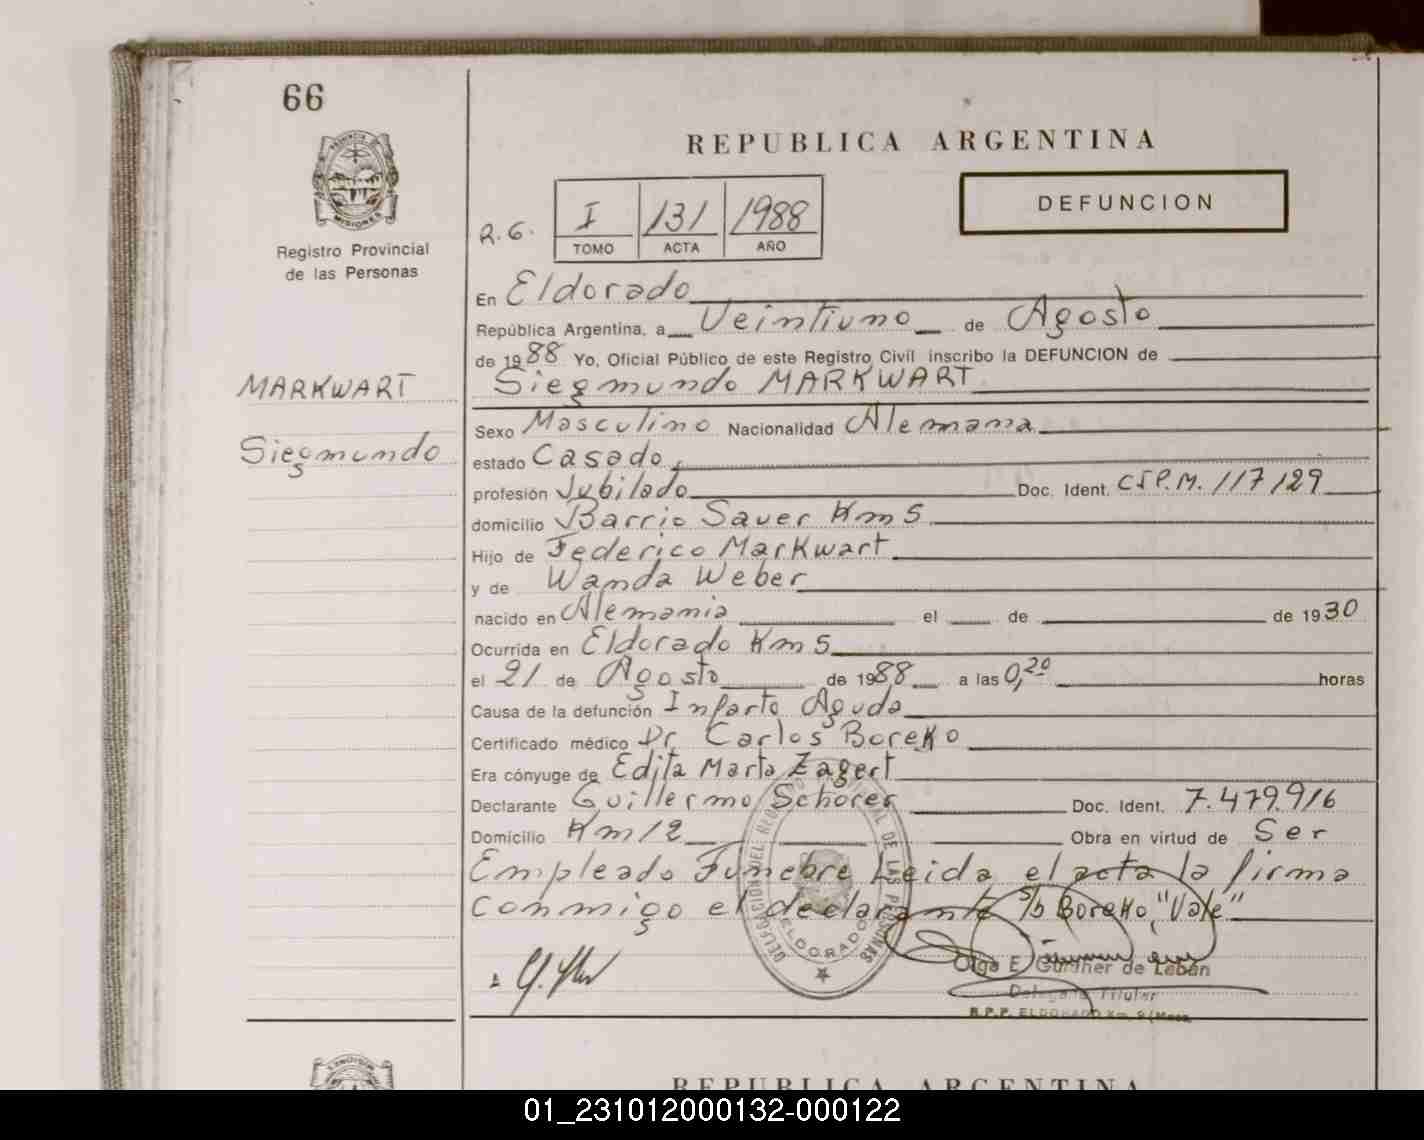 66
REPUBLICA ARGENTINA
PROVINCIA DE MISIONES
Registro Provincial
de las Personas
DEFUNCION
R.G. I 131 1988
TOMO ACTA AÑO
En Eldorado
República Argentina, a Veintiuno de Agosto
de 1988 Yo, Oficial Público de este Registro Civil inscribo la DEFUNCION de
MARKWART
Siegmundo MARKWART
Sexo Masculino Nacionalidad Alemana
Siegmundo
estado Casado
profesión Jubilado Doc. Ident. C.I.P.M. 117129
domicilio Barrio Sauer Km 5
Hijo de Federico Markwart
y de Wanda Weber
nacido en Alemania el de de 1930
Ocurrida en Eldorado Km 5
el 21 de Agosto de 1988 a las 0,20 horas
Causa de la defunción Infarto Agudo
Certificado médico Dr. Carlos Boreko
Era cónyuge de Edita Marta Zagert
Declarante Guillermo Schorer Doc. Ident. 7.479.916
Domicilio Km 12 Obra en virtud de Ser
Empleado Funebre Leida el acta la firma
conmigo el declarante s/b Boreko, "Vale"
DELEGACION DEL REGISTRO PROVINCIAL DE LAS PERSONAS
ELDORADO
Olga E. Günther de Lebán
Delegada Titular
R.P.P. ELDORADO Km. 9 (Mnes.
REPUBLICA ARGENTINA
01_231012000132-000122